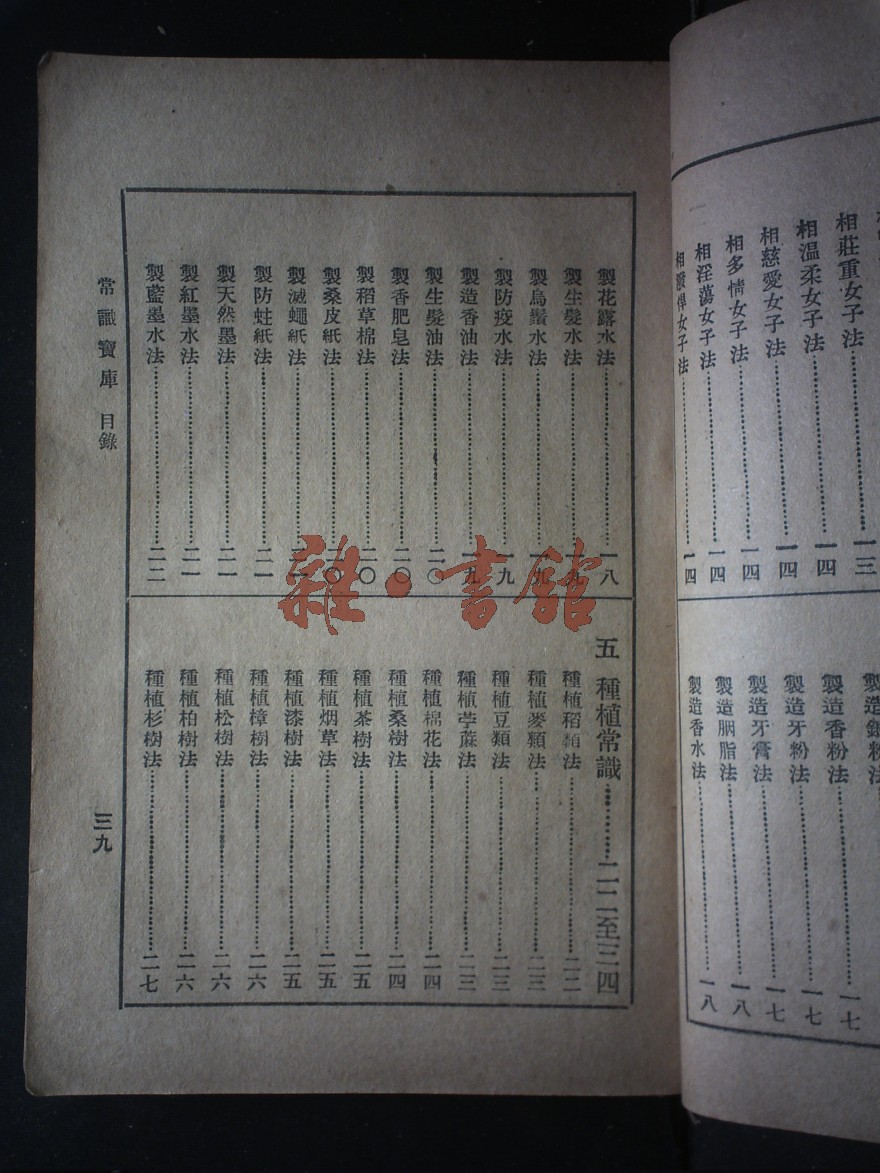 相莊重女子法⋯⋯一三
相溫柔女子法⋯⋯一四
相慈愛女子法⋯⋯一四
相多情女子法⋯⋯一四
相淫蕩女子法⋯⋯一四
相潑悍女子法⋯⋯一四
製造香粉法⋯⋯一七
製造牙粉法⋯⋯一七
製造牙膏法⋯⋯一七
製造胭脂法⋯⋯一八
製造香水法⋯⋯一八
製花露水法⋯⋯一八
製生髮水法⋯⋯一九
製烏鬚水法⋯⋯一九
製防疫水法⋯⋯一九
製造香油法⋯⋯一九
製生髮油法⋯⋯二〇
製香肥皂法⋯⋯二〇
製稻草棉法⋯⋯二〇
製桑皮紙法⋯⋯二〇
製滅蠅紙法
製防蛀紙法⋯⋯二一
製天然墨法⋯⋯二一
製紅墨水法⋯⋯二一
製藍墨水法⋯⋯二二
五 種植常識⋯⋯二二至三四
種植稻類法⋯⋯二二
種植麥類法⋯⋯二三
種植豆類法⋯⋯二三
種植苧蔴法⋯⋯二三
種植棉花法⋯⋯二四
種植桑樹法⋯⋯二四
種植茶樹法⋯⋯二五
種植烟草法⋯⋯二五
種植漆樹法⋯⋯二五
種植樟樹法⋯⋯二六
種植松樹法⋯⋯二六
種植柏樹法⋯⋯二六
種植杉樹法⋯⋯二七
常識寶庫 目錄
三九
雜·書館